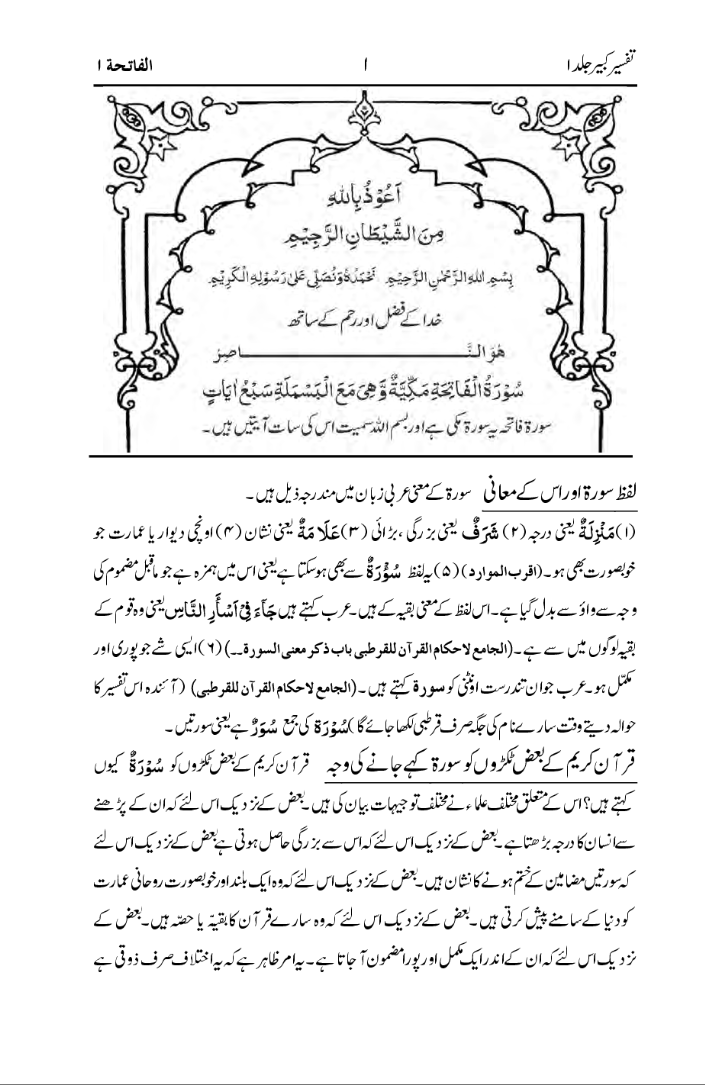 تفسیر کبیر جلد ۱ ۱ الفاتحة ۱
اَعُوْذُ بِاللّٰهِ
مِنَ الشَّيْطَانِ الرَّجِيْمِ
بِسْمِ اللّٰهِ الرَّحْمٰنِ الرَّحِيْمِ نَحْمَدُهٗ وَنُصَلِّیْ عَلٰی رَسُوْلِهِ الْكَرِيْمِ
خدا کے فضل اور رحم کے ساتھ
هُوَ النَّــــــــــــــــــــاصِرُ
سُوْرَةُ الْفَاتِحَةِ مَكِّيَّةٌ وَّهِیَ مَعَ الْبَسْمَلَةِ سَبْعُ اٰيَاتٍ
سورۃ فاتحہ یہ سورۃ مکی ہے اور بسم اللہ سمیت اس کی سات آیتیں ہیں۔
لفظ سورۃ اور اس کے معانی سورۃ کے معنی عربی زبان میں مندرجہ ذیل ہیں۔
(۱) مَنْزِلَةٌ یعنی درجہ (۲) شَرَفٌ یعنی بزرگی، بڑائی (۳) عَلَامَةٌ یعنی نشان (۴) اونچی دیوار یا عمارت جو
خوبصورت بھی ہو۔ (اقرب الموارد) (۵) یہ لفظ سُؤْرَةٌ سے بھی ہو سکتا ہے یعنی اس میں ہمزہ ہے جو ماقبل مضموم کی
وجہ سے واؤ سے بدل گیا ہے۔ اس لفظ کے معنی بقیہ کے ہیں۔ عرب کہتے ہیں جَآءَ فِیْ اَسْأَرِ النَّاسِ یعنی وہ قوم کے
بقیہ لوگوں میں سے ہے۔ (الجامع لاحکام القرآن للقرطبی باب ذکر معنی السورة۔۔) (۶) ایسی شے جو پوری اور
مکمّل ہو۔ عرب جوان تندرست اونٹنی کو سورة کہتے ہیں۔ (الجامع لاحکام القرآن للقرطبی) (آئندہ اس تفسیر کا
حوالہ دیتے وقت سارے نام کی جگہ صرف قرطبی لکھا جائے گا) سُوْرَة کی جمع سُوَرٌ ہے یعنی سورتیں۔
قرآن کریم کے بعض ٹکڑوں کو سورۃ کہے جانے کی وجہ قرآن کریم کے بعض ٹکڑوں کو سُوْرَةٌ کیوں
کہتے ہیں؟ اس کے متعلق مختلف علماء نے مختلف توجیہات بیان کی ہیں۔ بعض کے نزدیک اس لئے کہ ان کے پڑھنے
سے انسان کا درجہ بڑھتا ہے۔ بعض کے نزدیک اس لئے کہ اس سے بزرگی حاصل ہوتی ہے بعض کے نزدیک اس لئے
کہ سورتیں مضامین کے ختم ہونے کا نشان ہیں۔ بعض کے نزدیک اس لئے کہ وہ ایک بلند اور خوبصورت روحانی عمارت
کو دنیا کے سامنے پیش کرتی ہیں۔ بعض کے نزدیک اس لئے کہ وہ سارے قرآن کا بقیّہ یا حصّہ ہیں۔ بعض کے
نزدیک اس لئے کہ ان کے اندر ایک مکمل اور پورا مضمون آ جاتا ہے۔ یہ امر ظاہر ہے کہ یہ اختلاف صرف ذوقی ہے